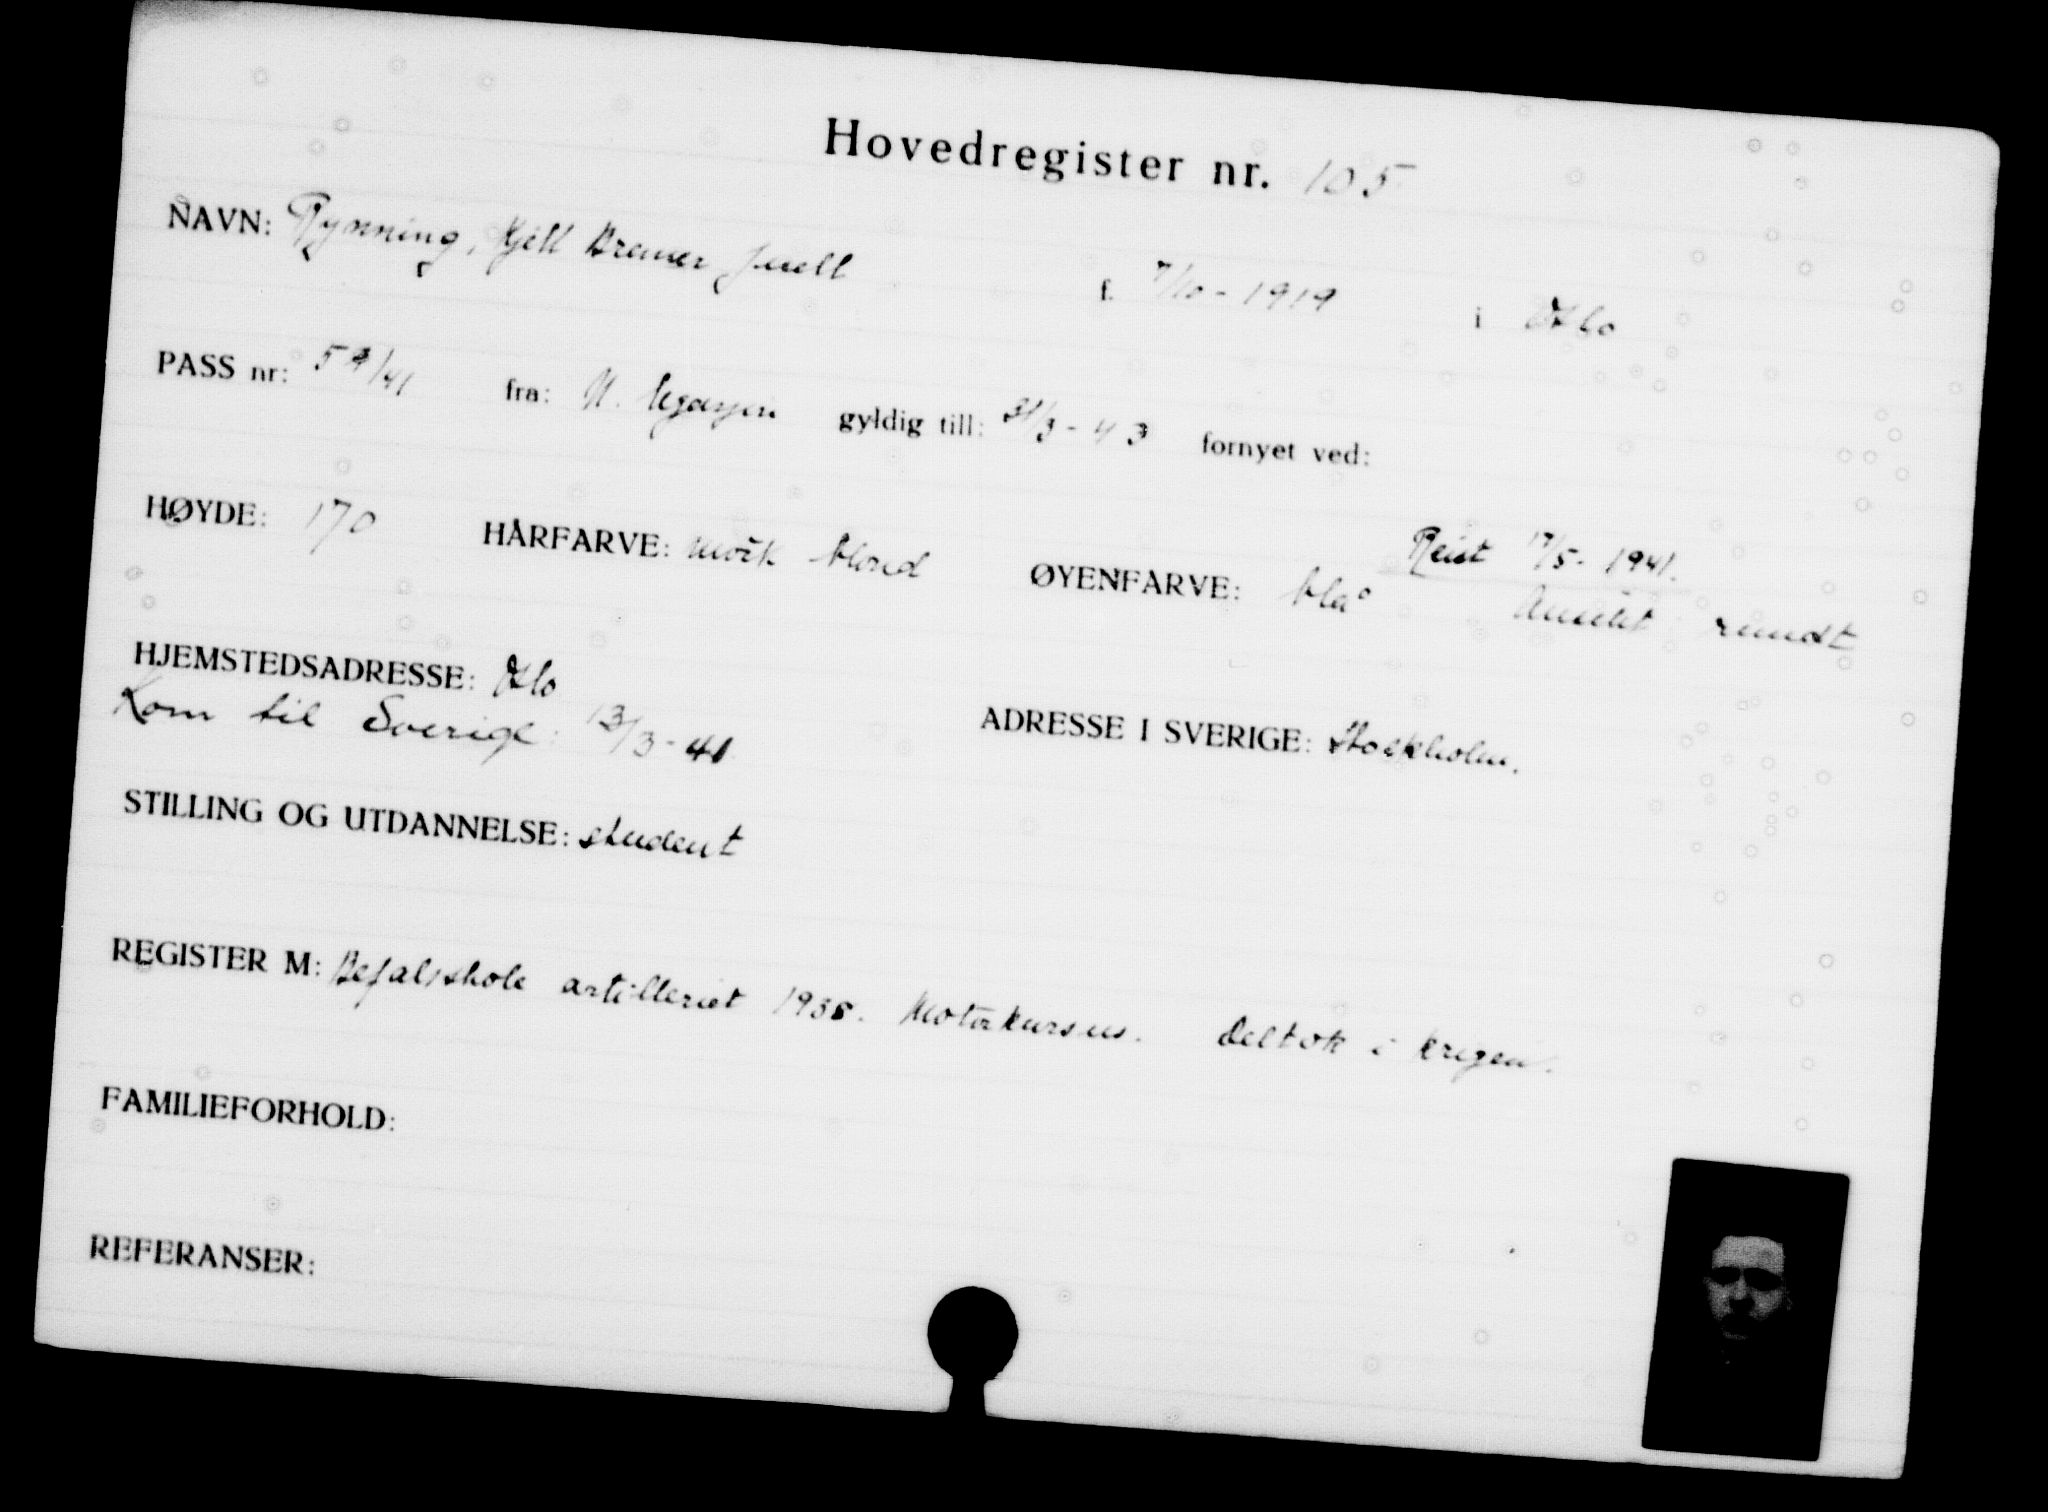 Hovedregister nr. 105
NAVN: Rynning, Kjell Bremer Juell f. 7/10 - 1919 i Oslo
PASS nr: 59/41 fra: N. legasjon gyldig till: 31/3 - 43 fornyet ved:
Reist 17/5 - 1941.
HØYDE: 170 HÅRFARVE: mörk blond ØYENFARVE: blå Ansikt rundt
HJEMSTEDSADRESSE: Oslo ADRESSE I SVERIGE: Stockholm.
Kom til Sverige: 13/3 - 41
STILLING OG UTDANNELSE: student
REGISTER M: Befalsskole artilleriet 1938. Motorkursus. Deltok i krigen.
FAMILIEFORHOLD:
REFERANSER: